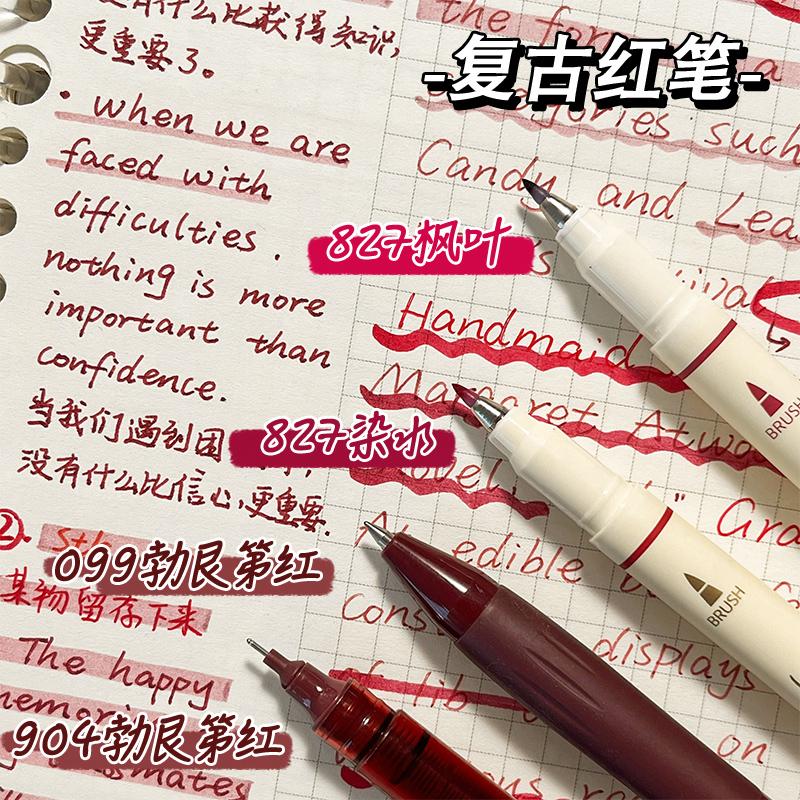 有什么比获得知识,
更重要了。
-复古红笔-
· when we are
faced with
difficulties.
nothing is more
important than
confidence.
当我们遇到困
没有什么比信心,更重要.
②. sth
某物留存下来
The happy
the for
such
Candy and
Handmaid's
Margaret Atwo
novel,
Gra
An edible
displays
on
827枫叶
827染水
099勃艮第红
904勃艮第红
BRUSH
BRUSH